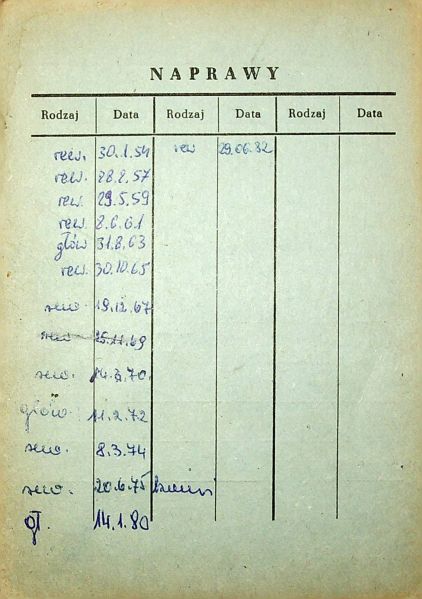 NAPRAWY
Rodzaj Data Rodzaj Data Rodzaj Data
rew. 30.1.54 rew 29.06.82
rew. 28.2.57
rew. 29.5.59
rew. 8.6.61
głów 31.8.63
rew. 30.10.65
rew. 19.12.67
rew 25.11.69
rew. 14.3.70.
główn. 11.2.72
rew. 8.3.74
rew. 20.6.75
gł. 14.1.80